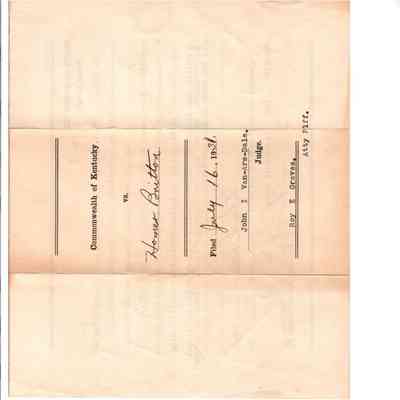 Commonwealth of Kentucky
vs.
Homer Britton
Filed July 16. 1931.
John I Van-Ars-Dale.
Judge.
Roy E Graves.
Atty Plff.